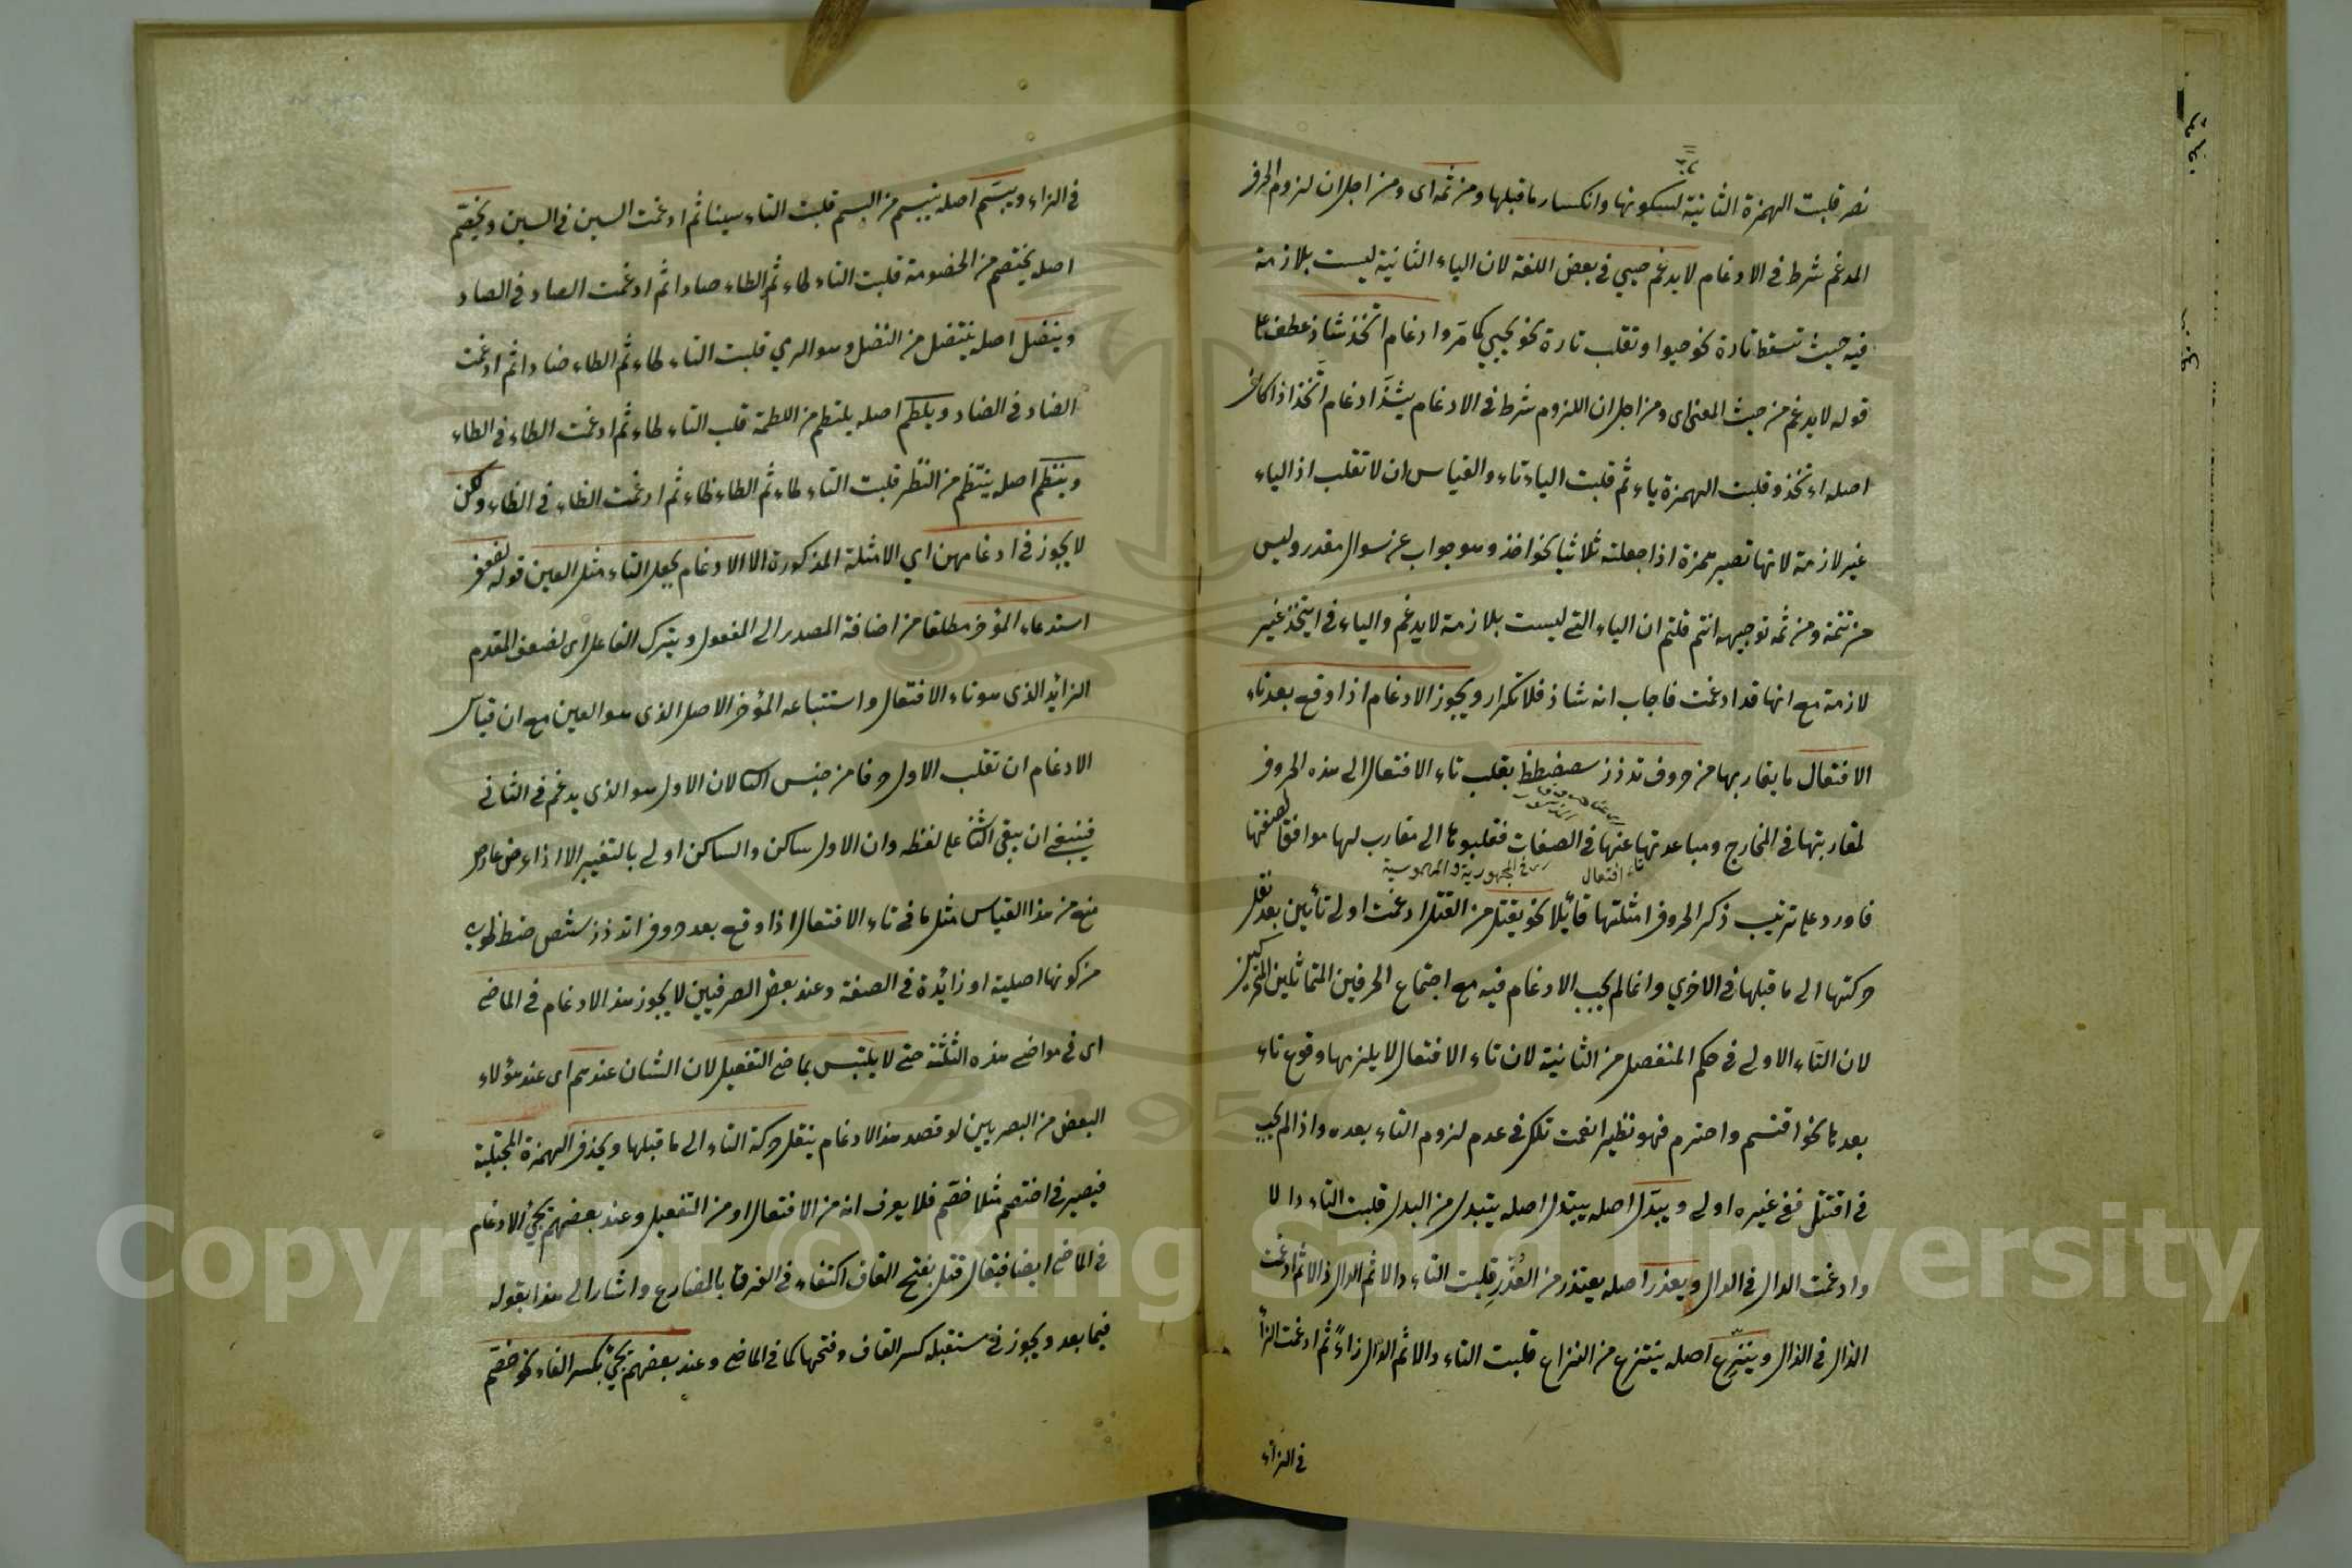 نصر قلبت الهمزة الثانية لسكونها وانكسار ما قبلها ومن ثمه اى ومن اجل ان لزوم الحرف
المدغم شرط فى الادغام لا يدغم حيي فى بعض اللغة لان الياء الثانية ليست بلازمة
فيه حيث تسقط تارة نحو حيوا وتقلب تارة نحو يحيي كما مر وادغام اتخذ شاذ عطف على
قوله لا يدغم من حيث المعنى اى ومن اجل ان اللزوم شرط فى الادغام يشذ ادغام اتخذ اذا كان
اصله اءتخذ وقلبت الهمزة ياء ثم قلبت الياء تاء والقياس ان لا تقلب اذ الياء
غير لازمة لانها تصير همزة اذا جعلته ثلاثيا نحو اخذ وهو جواب عن سوال مقدر وليس
من تتمة ومن ثمه توجيهه انتم قلتم ان الياء التے ليست بلازمة لا يدغم والياء فى ايتخذ غير
لازمة مع انها قد ادغمت فاجاب انه شاذ فلا تكرار ويجوز الادغام اذا وقع بعد تاء
الافتعال ما يقاربها من حروف تدذز سصضطظ بقلب تاء الافتعال الى هذه الحروف
لمقاربتها فى المخارج ومباعدتها عنها فى الصفات فقلبوها الى مقارب لها موافقا لصفتها
تاء افتعال
فى المجهورية والمهموسية
فاورد على ترتيب ذكر الحروف امثلتها قائلا نحو يقتل من القتل ادغمت اولى تائين بعد نقل
حركتها الى ما قبلها فى الاخري وانما لم يجب الادغام فيه مع اجتماع الحرفين المتماثلين المتحركين
لان التاء الاولى فى حكم المنفصل من الثانية لان تاء الافتعال لا يلزمها وقوع تاء
بعدها نحو اقتسم واحترم فهو نظير انعمت تلك فى عدم لزوم التاء بعده واذا لم يجب
فى اقتتل ففى غيره اولى ويبدل اصله يبتدل اصله يبتدل من البدل قلبت التاء دالا
وادغمت الدال فى الدال ويعذر اصله يعتذر من العذر قلبت التاء دالا ثم الدال ذالا ثم ادغمت
الذال فى الذال وينزع اصله ينتزع من النزاع قلبت التاء دالا ثم الدال زاء ثم ادغمت الزاء
فى الزاء
فى الزاء ويبسم اصله يبتسم من البسم قلبت التاء سينا ثم ادغمت السين فى السين ويخصم
اصله يختصم من الخصومة قلبت التاء طاء ثم الطاء صادا ثم ادغمت الصاد فى الصاد
وينضل اصله ينتضل من النضل وهو الرمي قلبت التاء طاء ثم الطاء ضادا ثم ادغمت
الضاد فى الضاد ويلطم اصله يلتطم من اللطمة قلب التاء طاء ثم ادغمت الطاء فى الطاء
وينظم اصله ينتظم من النظم قلبت التاء طاء ثم الطاء ظاء ثم ادغمت الظاء فى الظاء ولكن
لا يجوز فى ادغامهن اي الامثلة المذكورة الا الادغام بجعل التاء مثل العين قوله لضعف
استدعاء المؤخر مطلقا من اضافة المصدر الى المفعول ويترك الفاعل اى لضعف المقدم
الزائد الذى هو تاء الافتعال واستتباعه المؤخر الاصل الذى هو العين مع ان قياس
الادغام ان تقلب الاول حرفا من جنس الثانى لان الاول هو الذى يدغم فى الثانى
فينبغى ان يبقى الثانى على لفظه وان الاول ساكن والساكن اولى بالتغيير الا اذا عرض عارض
منع من هذا القياس مثل ما فى تاء الافتعال اذا وقع بعد حروف
من كونها اصلية او زائدة فى الصفة وعند بعض الصرفيين لا يجوز هذا الادغام فى الماضى
اى فى مواضع هذه الثلثة حتى لا يلتبس بماضى التفعيل لان الشان عندهم اى عند هؤلاء
البعض من البصريين لو قصد هذا الادغام ينقل حركة التاء الى ما قبلها ويحذف الهمزة المجتلبة
فيصير فى اختصم مثلا خصم فلا يعرف انه من الافتعال او من التفعيل وعند بعضهم يجئ الادغام
فى الماضى ايضا فيقال قتل بفتح القاف اكتفاء فى الفرق بالمضارع واشار الى هذا بقوله
فيما بعد ويجوز فى مستقبله كسر القاف وفتحها كما فى الماضى وعند بعضهم يجئ بكسر الفاء نحو خصم
Copyright © King Saud University
1957